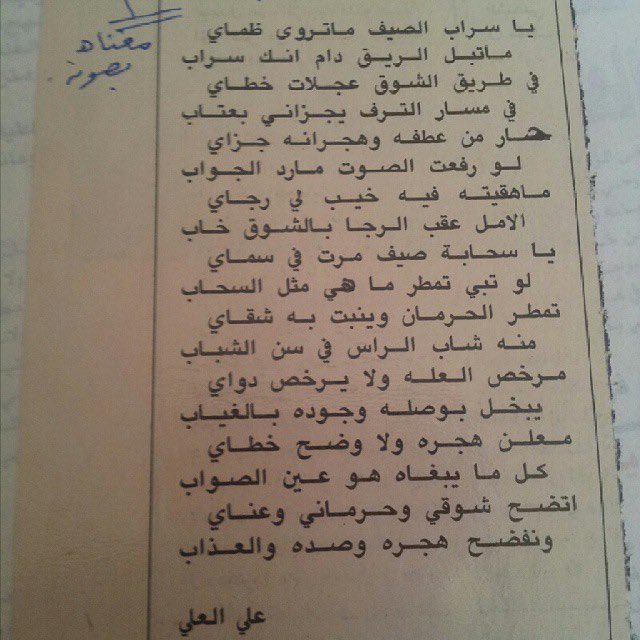 مغناه
بصوته.
يا سراب الصيف ماتروي ظماي
ماتبل الريق دام انك سراب
في طريق الشوق عجلات خطاي
في مسار الترف يجزاني بعتاب
حار من عطفه وهجرانه جزاي
لو رفعت الصوت مارد الجواب
ماهقيته فيه خيب لي رجاي
الامل عقب الرجا بالشوق خاب
يا سحابة صيف مرت في سماي
لو تبي تمطر ما هي مثل السحاب
تمطر الحرمان وينبت به شقاي
منه شاب الراس في سن الشباب
مرخص العله ولا يرخص دواي
يبخل بوصله وجوده بالغياب
معلن هجره ولا وضح خطاي
كل ما يبغاه هو عين الصواب
اتضح شوقي وحرماني وعناي
ونفضح هجره وصده والعذاب
علي العلي